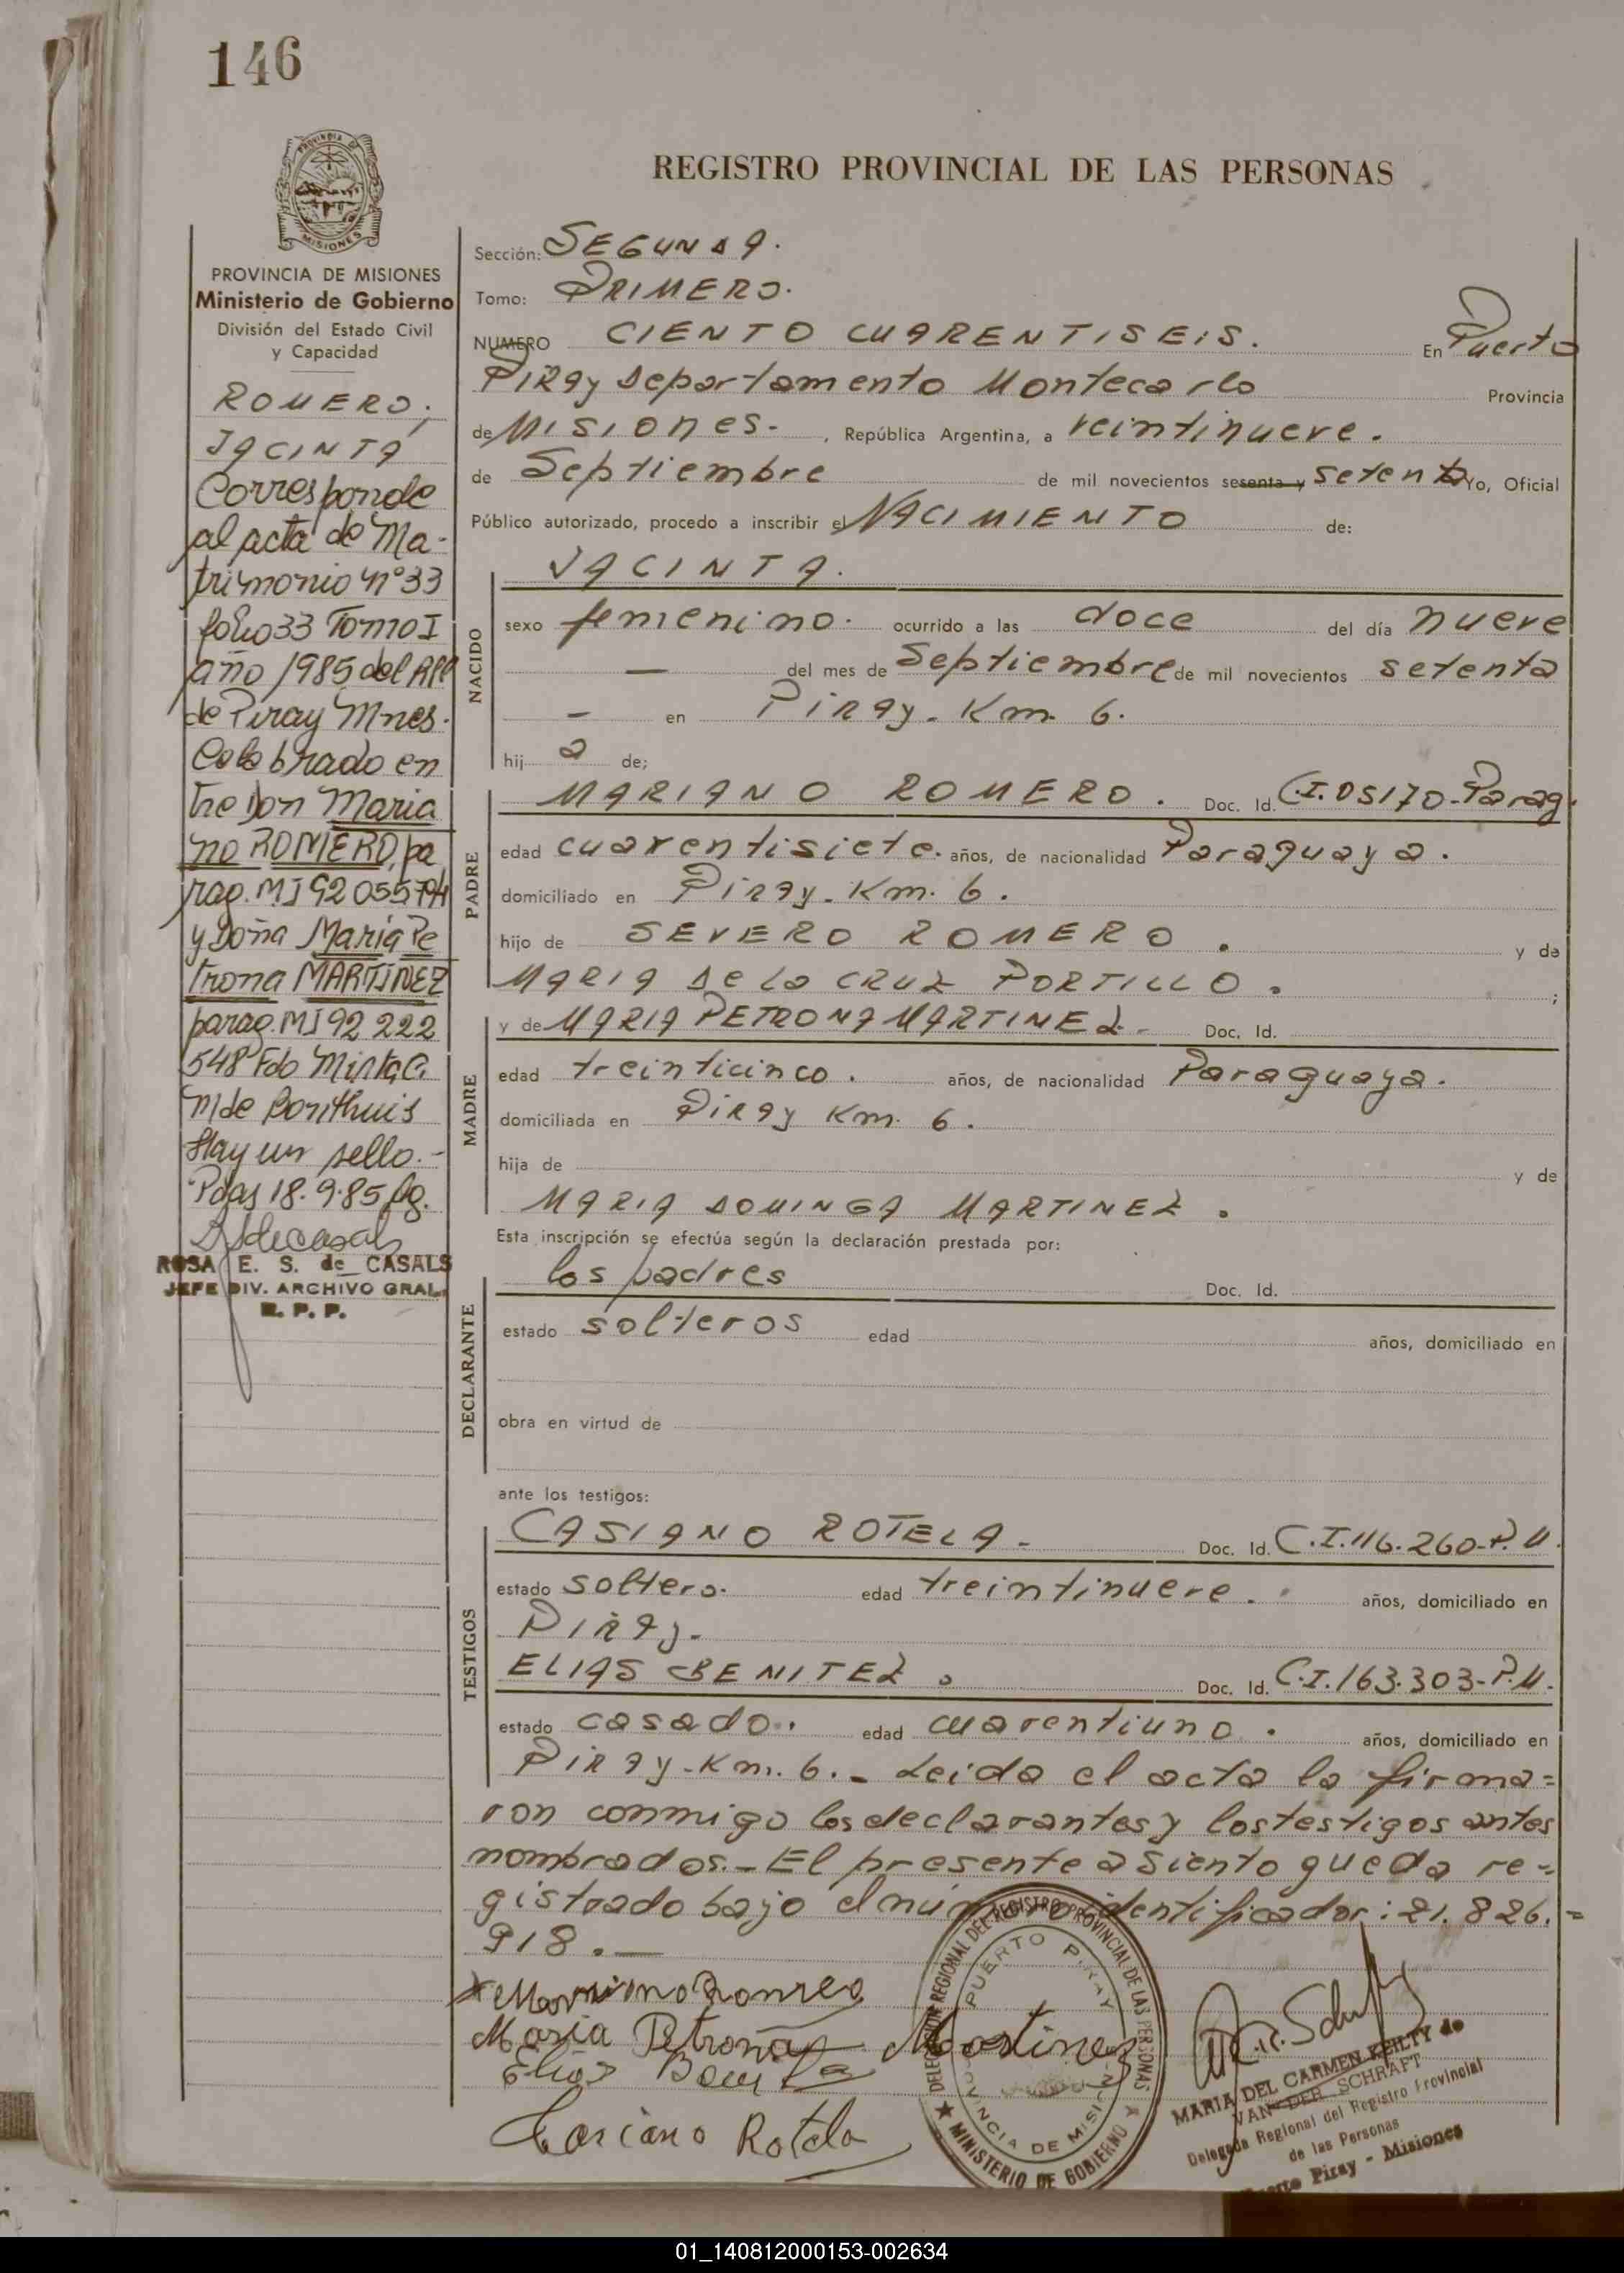 146
PROVINCIA DE MISIONES
REGISTRO PROVINCIAL DE LAS PERSONAS
PROVINCIA DE MISIONES
Ministerio de Gobierno
División del Estado Civil
y Capacidad
ROMERO,
JACINTA
Corresponde
al acta de Ma-
trimonio nº 33
folio 33 Tomo I
año 1985 del
de Piray Mnes.
Celebrado en
tre Don Maria
no ROMERO, pa
rag. MI 92 055 794
y Doña Maria Pe
trona MARTINEZ
parag. MI 92 222
548 Fdo Mirta C.
M de Bonthuis
Hay un sello.-
Pdas 18.9.85
ROSA E. S. de CASALS
JEFE DIV. ARCHIVO GRAL.
R. P. P.
Sección: SEGUNDA.
Tomo: PRIMERO.
NUMERO CIENTO CUARENTISEIS. En Puerto
Piray Departamento Montecarlo Provincia
de Misiones. , República Argentina, a veintinueve.
de Septiembre de mil novecientos sesenta y setenta Yo, Oficial
Público autorizado, procedo a inscribir el NACIMIENTO de:
JACINTA.
NACIDO
sexo femenino. ocurrido a las doce del día nueve
— del mes de Septiembre de mil novecientos setenta
— en Piray. Km. 6.
hij a de;
PADRE
MARIANO ROMERO. Doc. Id. C.I. 05170-Parag.
edad cuarentisiete. años, de nacionalidad Paraguaya.
domiciliado en Piray. Km. 6.
hijo de SEVERO ROMERO. y de
MARIA De La CRUZ PORTILLO. ;
MADRE
y de MARIA PETRONA MARTINEZ.- Doc. Id.
edad treinticinco. años, de nacionalidad Paraguaya.
domiciliada en Piray Km. 6.
hija de y de
MARIA DOMINGA MARTINEZ.
Esta inscripción se efectúa según la declaración prestada por:
DECLARANTE
los padres Doc. Id.
estado solteros edad años, domiciliado en
obra en virtud de
ante los testigos:
TESTIGOS
CASIANO ROTELA.- Doc. Id. C.I. 116.260-P.M.
estado soltero. edad treintinueve. años, domiciliado en
Piray.
ELIAS BENITEZ. Doc. Id. C.I. 163.303-P.M.
estado casado. edad cuarentiuno. años, domiciliado en
Piray-Km. 6.- Leida el acta la firma=
ron conmigo los declarantes y los testigos antes
nombrados.- El presente asiento queda re-
gistrado bajo el número identificador: 21.826.=
918.—
x Mariano Romero
Maria Petrona Martinez
Elias Benitez
Casiano Rotela
DELEGACION REGIONAL DEL REGISTRO PROVINCIAL DE LAS PERSONAS
PUERTO PIRAY
PROVINCIA DE MISIONES
★ MINISTERIO DE GOBIERNO ★
MARIA DEL CARMEN KEILTY de
VAN DER SCHRAFT
Delegada Regional del Registro Provincial
de las Personas
Puerto Piray - Misiones
01_140812000153-002634